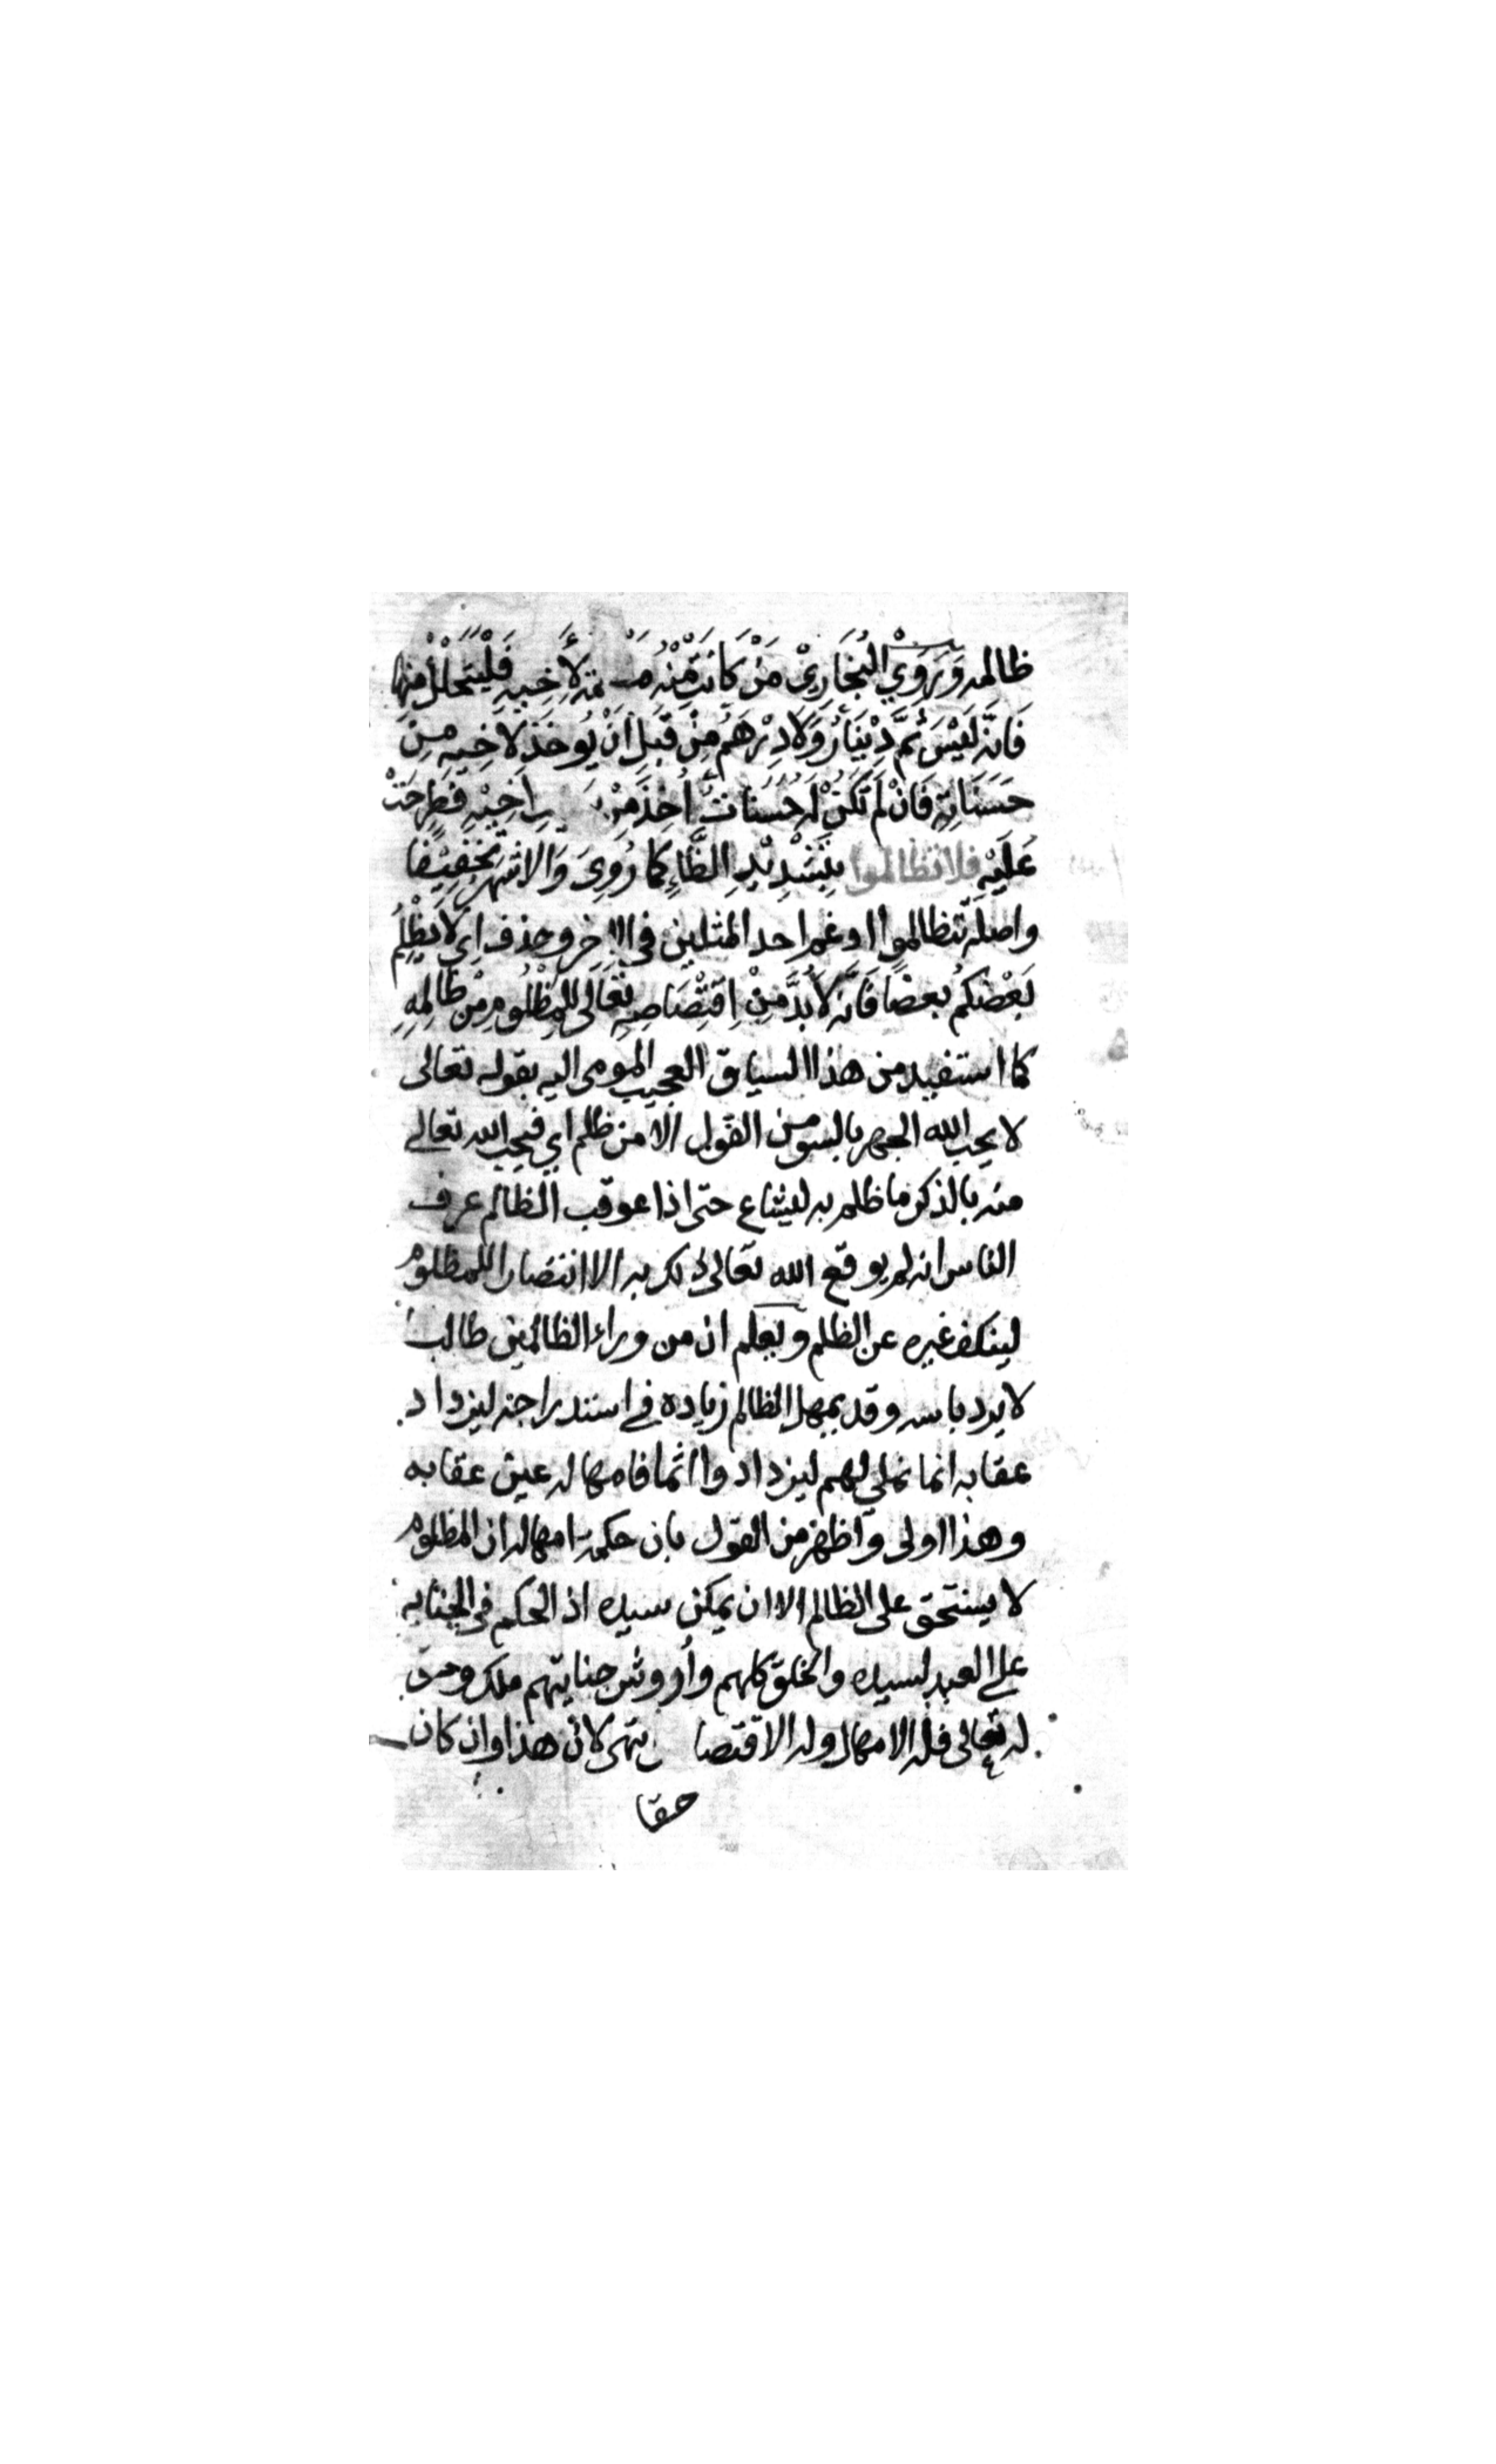 ظالمه وَرَوَيْ البُخَارِيْ مَنْ كَانَتْ مِّنْهُ لأَخِيهِ فَلْيَتَحَلَّلْ مِنْهَا
فَانَّه لَيْسَ ثَمَّ دِيْنَارٌ وَلَا دِرْهَمٌ مِنْ قَبلِ أَنْ يُوخَذَ لاخِيهِ مِنْ
حَسَنَاتِهِ فَانْ لَمْ تَكُنْ لَه حُسَنَاتٌ أُخِذَ مِنْ اخِيْهِ فَطُرِحَتْ
عَلَيْهِ فلا تظالموا بِتَشْدِيْدِ الظَّاءِ كما رُوِيَ وَالاشهَر تَخْفِيْفها
واصله تتظالموا ادغم احد المثلين في الاخر وحذف اي لا يَظْلِمُ
بَعْضُكُم بعضًا فَانَّه لَا بُدَّ مِنْ اِقْتِصَاصِهِ تَعَالَى لِلمَظْلُومِ مِنْ ظَالِمِهِ
كما استفيد من هذا السياق العجيب المومى اليه بقوله تعالى
لا يحب الله الجهر بالسو من القول الا من ظلم اي فيحب الله تعالى
منه بالذكر ما ظلم به ليشاع حتى اذا عوقب الظالم عرف
الناس انه لم يوقع الله تعالى ذلك به الا انتصارا للمظلوم
لينكف غيره عن الظلم ويعلم ان من وراء الظالمين طالب
لا يرد باسه وقد يمهل الظالم زياده في استدراجه ليزداد
عقابه انما نملي لهم ليزدادوا اثما فامهاله عين عقابه
وهذا اولى واظهر من القول بان حكمة امهاله ان المظلوم
لا يستحق على الظالم الا ان يمكن سيده اذ الحكم في الجنايه
على العبد لسيده والخلق كلهم وأروش جنايتهم ملك وحق
له تعالى فله الامهال وله الاقتصا لان هذا وان كان
حقا